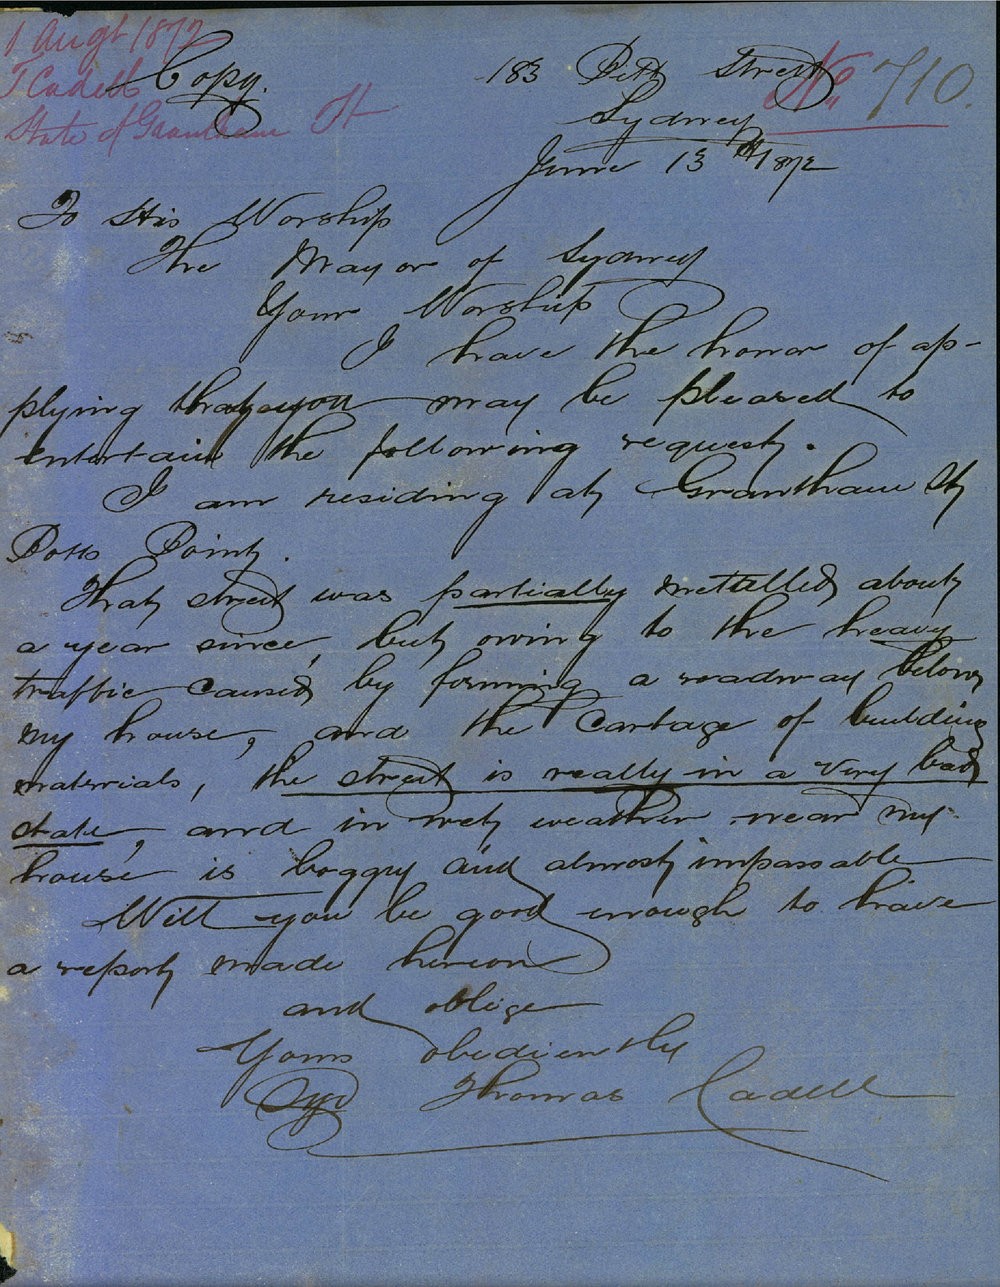 1 Augt 1872
T Cadell
State of Grantham St
Copy.
183 Pitt Street
No. 710.
Sydney
June 13th 1872
To His Worship
The Mayor of Sydney
Your Worship
I have the honor of ap-
plying that you may be pleased to
entertain the following request.
I am residing at Grantham St
Potts Point.
That street was partially metalled about
a year since, but owing to the heavy
traffic caused by forming a roadway below
my house, and the cartage of building
materials, the street is really in a very bad
state, and in wet weather near my
house is boggy and almost impassable
Will you be good enough to have
a report made hereon
and oblige
Yours obediently
Sgd Thomas Cadell